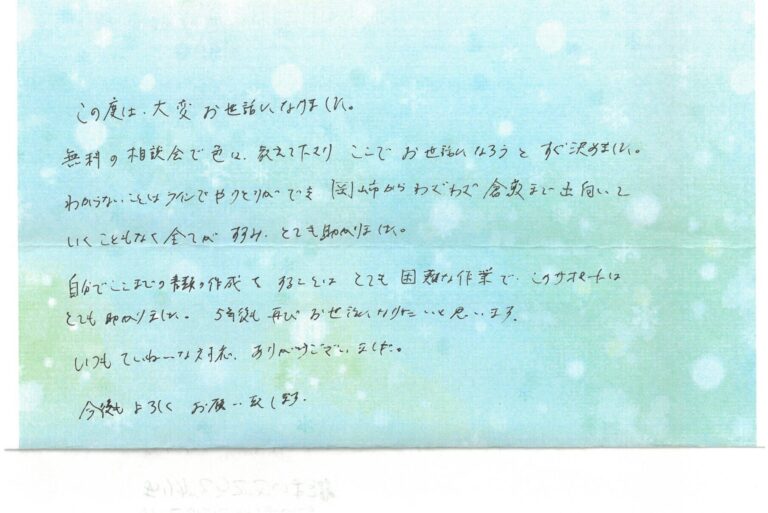 この度は、大変お世話になりました。
無料の相談会で色々、教えて下さり ここで お世話になろうと すぐ決めました。
わからないことはラインでやりとりができ 岡山市からわざわざ 倉敷まで出向いて
いくこともなく全てがすみ、とても助かりました。
自分でここまでの書類の作成を することは とても 困難な作業で、このサポートは
とても 助かりました。 5年後も 再び お世話になりたいと思います。
いつも ていねいな対応、ありがとうございました。
今後も よろしく お願い致します。